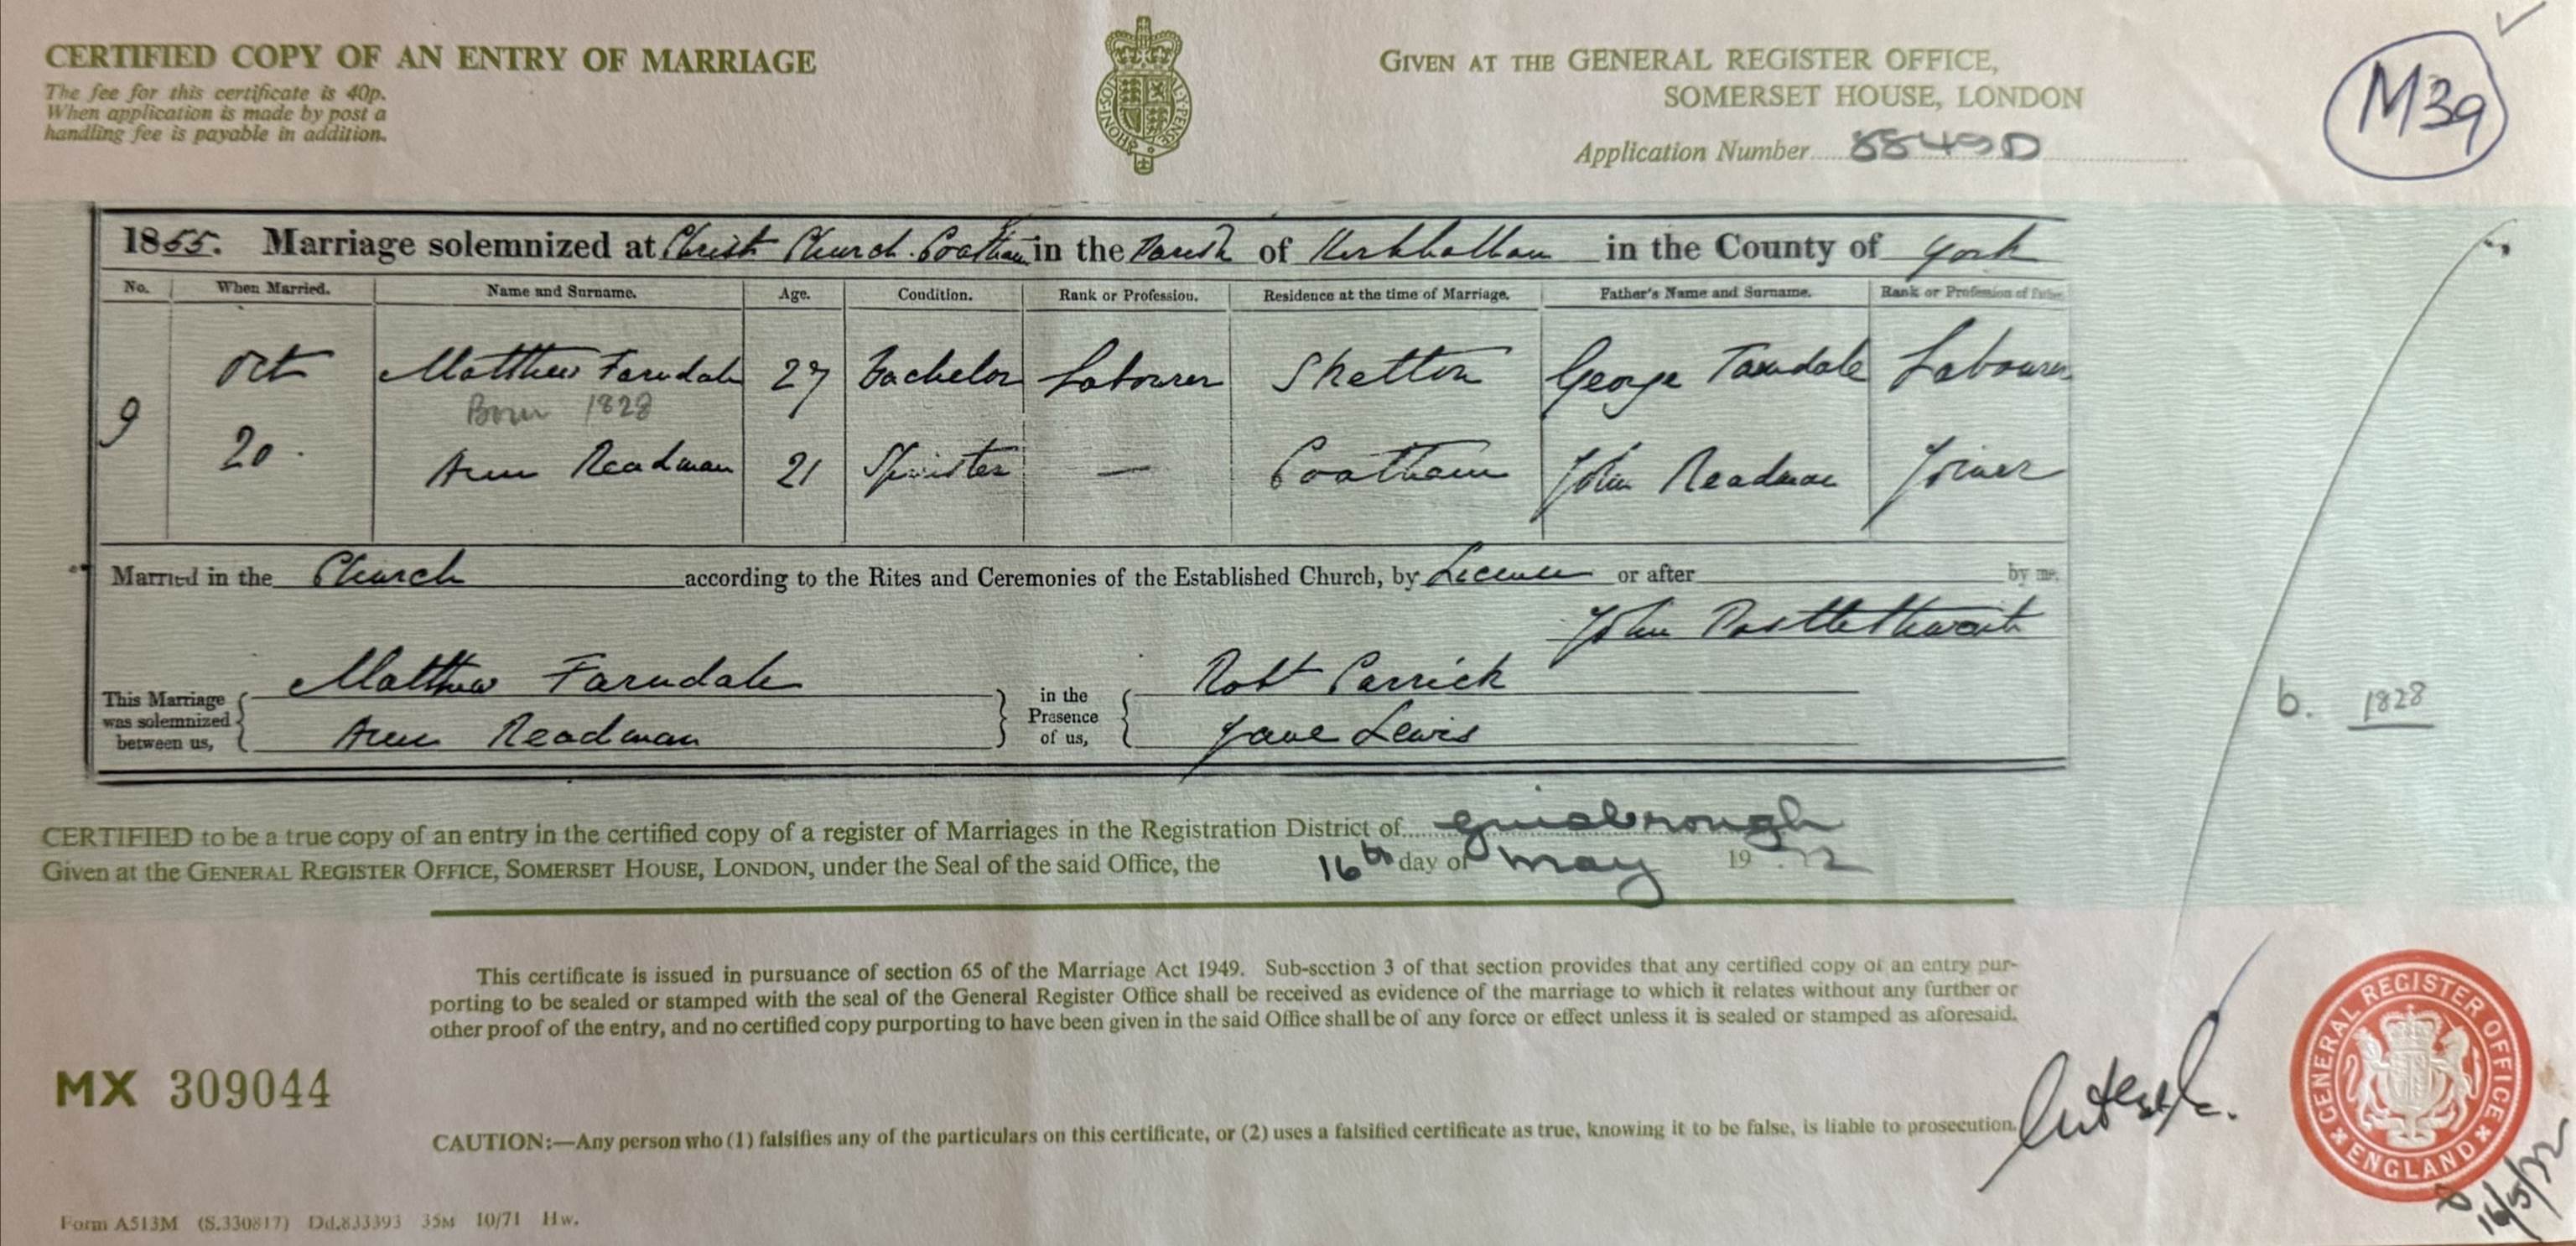 CERTIFIED COPY OF AN ENTRY OF MARRIAGE
The fee for this certificate is 40p.
When application is made by post a
handling fee is payable in addition.
GIVEN AT THE GENERAL REGISTER OFFICE,
SOMERSET HOUSE, LONDON
Application Number 8849D
M39
1855. Marriage solemnized at Christ Church Coatham in the Parish of Kirkleatham in the County of York
No. When Married. Name and Surname. Age. Condition. Rank or Profession. Residence at the time of Marriage. Father's Name and Surname. Rank or Profession of Father
Oct Matthew Farndale 27 Bachelor Labourer Skelton George Farndale Labourer
Born 1828
9
20. Ann Readman 21 Spinster — Coatham John Readman Joiner
Married in the Church according to the Rites and Ceremonies of the Established Church, by Licence or after by me,
John Postlethwaite
This Marriage was solemnized between us, Matthew Farndale
Ann Readman
in the Presence of us, Robt Carrick
Jane Lewis
b. 1828
CERTIFIED to be a true copy of an entry in the certified copy of a register of Marriages in the Registration District of Guisbrough
Given at the GENERAL REGISTER OFFICE, SOMERSET HOUSE, LONDON, under the Seal of the said Office, the 16th day of May 1972
This certificate is issued in pursuance of section 65 of the Marriage Act 1949. Sub-section 3 of that section provides that any certified copy of an entry pur-
porting to be sealed or stamped with the seal of the General Register Office shall be received as evidence of the marriage to which it relates without any further or
other proof of the entry, and no certified copy purporting to have been given in the said Office shall be of any force or effect unless it is sealed or stamped as aforesaid.
MX 309044
CAUTION:—Any person who (1) falsifies any of the particulars on this certificate, or (2) uses a falsified certificate as true, knowing it to be false, is liable to prosecution.
GENERAL REGISTER OFFICE
ENGLAND
16/5/72
Form A513M (S.330817) Dd.833393 35M 10/71 Hw.